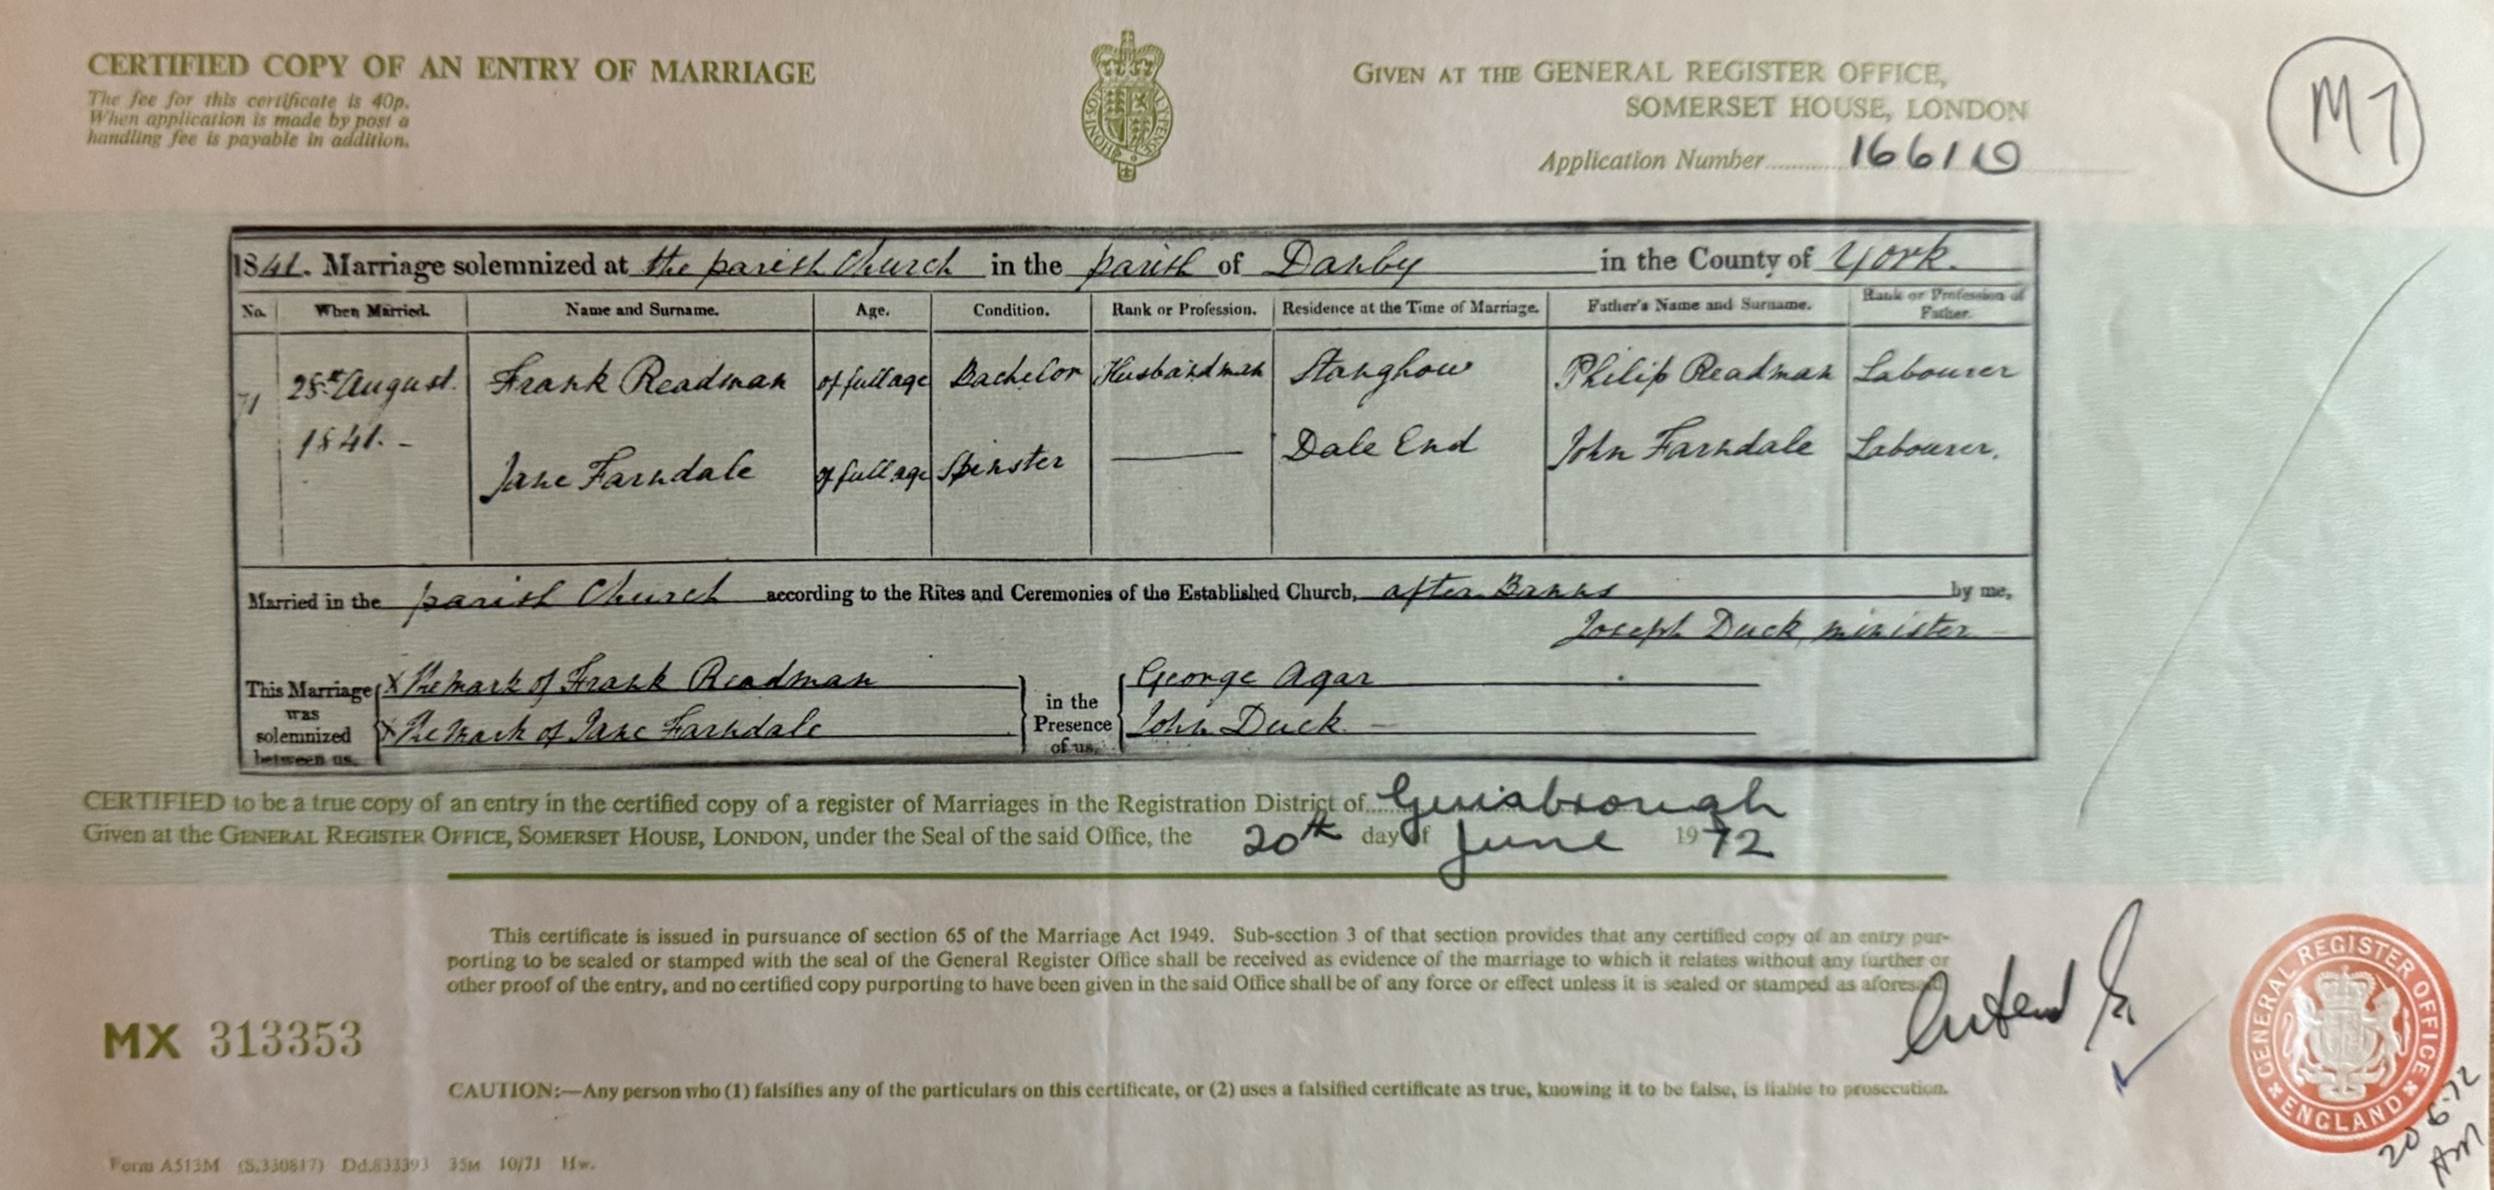 CERTIFIED COPY OF AN ENTRY OF MARRIAGE
The fee for this certificate is 40p.
When application is made by post a
handling fee is payable in addition.
GIVEN AT THE GENERAL REGISTER OFFICE,
SOMERSET HOUSE, LONDON
Application Number 166110
M7
1841. Marriage solemnized at the parish Church in the parish of Danby in the County of York.
No. When Married. Name and Surname. Age. Condition. Rank or Profession. Residence at the Time of Marriage. Father's Name and Surname. Rank or Profession of Father.
71 August. Frank Readman of full age Bachelor Husbandman Stanghow Philip Readman Labourer
1841. Jane Farndale of full age Spinster Dale End John Farndale Labourer.
Married in the parish Church according to the Rites and Ceremonies of the Established Church, after Banns by me,
Joseph Duck, minister
This Marriage was solemnized between us,
X The mark of Frank Readman
X The mark of Jane Farndale
in the Presence of us,
George Agar
John Duck
CERTIFIED to be a true copy of an entry in the certified copy of a register of Marriages in the Registration District of Guisbrough
Given at the GENERAL REGISTER OFFICE, SOMERSET HOUSE, LONDON, under the Seal of the said Office, the 20th day of June 1972
This certificate is issued in pursuance of section 65 of the Marriage Act 1949. Sub-section 3 of that section provides that any certified copy of an entry pur-
porting to be sealed or stamped with the seal of the General Register Office shall be received as evidence of the marriage to which it relates without any further or
other proof of the entry, and no certified copy purporting to have been given in the said Office shall be of any force or effect unless it is sealed or stamped as aforesaid
MX 313353
GENERAL REGISTER OFFICE ENGLAND
20.6.72
AM
CAUTION:—Any person who (1) falsifies any of the particulars on this certificate, or (2) uses a falsified certificate as true, knowing it to be false, is liable to prosecution.
Form A513M (S.330817) Dd.833393 35M 10/71 Hw.